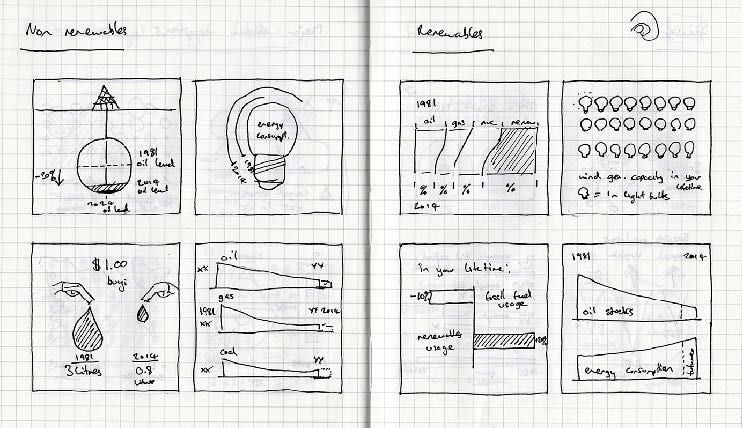 Non renewables
1981
oil level
-20%
2014
oil level
oil level
energy
consumpt.
1981
2014
$1.00
buys
1981
3 litres
2014
0.8
oil
XX
YY
gas
1981
XX
YY 2014
coal
XX
YY
Renewables
1981
oil gas nuc renew.
% % % %
2014
wind gen. capacity in your
lifetime
= 1m light bulbs
in your lifetime:
-10%
fossil fuel
usage
renewables
usage
1981
2014
oil stocks
energy consumption
future